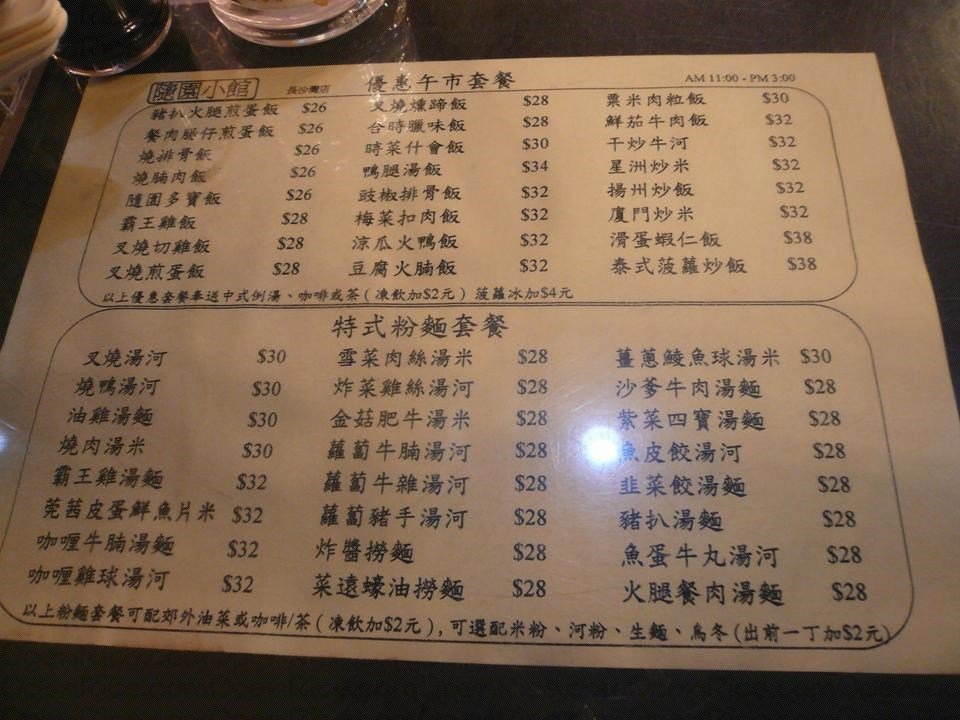 隨園小館 長沙灣店 優惠午市套餐 AM 11:00 - PM 3:00
豬扒火腿煎蛋飯 $26
餐肉腸仔煎蛋飯 $26
燒排骨飯 $26
燒腩肉飯 $26
隨園多寶飯 $26
霸王雞飯 $28
叉燒切雞飯 $28
叉燒煎蛋飯 $28
叉燒燻蹄飯 $28
合時臘味飯 $28
時菜什會飯 $30
鴨腿湯飯 $34
豉椒排骨飯 $32
梅菜扣肉飯 $32
涼瓜火鴨飯 $32
豆腐火腩飯 $32
粟米肉粒飯 $30
鮮茄牛肉飯 $32
干炒牛河 $32
星洲炒米 $32
揚州炒飯 $32
廈門炒米 $32
滑蛋蝦仁飯 $38
泰式菠蘿炒飯 $38
以上優惠套餐奉送中式例湯、咖啡或茶(凍飲加$2元) 菠蘿冰加$4元
特式粉麵套餐
叉燒湯河 $30
燒鴨湯河 $30
油雞湯麵 $30
燒肉湯米 $30
霸王雞湯麵 $32
莞茜皮蛋鮮魚片米 $32
咖喱牛腩湯麵 $32
咖喱雞球湯河 $32
雪菜肉絲湯米 $28
炸菜雞絲湯河 $28
金菇肥牛湯米 $28
蘿蔔牛腩湯河 $28
蘿蔔牛雜湯河 $28
蘿蔔豬手湯河 $28
炸醬撈麵 $28
菜遠蠔油撈麵 $28
薑蔥鯪魚球湯米 $30
沙爹牛肉湯麵 $28
紫菜四寶湯麵 $28
魚皮餃湯河 $28
韭菜餃湯麵 $28
豬扒湯麵 $28
魚蛋牛丸湯河 $28
火腿餐肉湯麵 $28
以上粉麵套餐可配郊外油菜或咖啡/茶(凍飲加$2元),可選配米粉、河粉、生麵、烏冬(出前一丁加$2元)